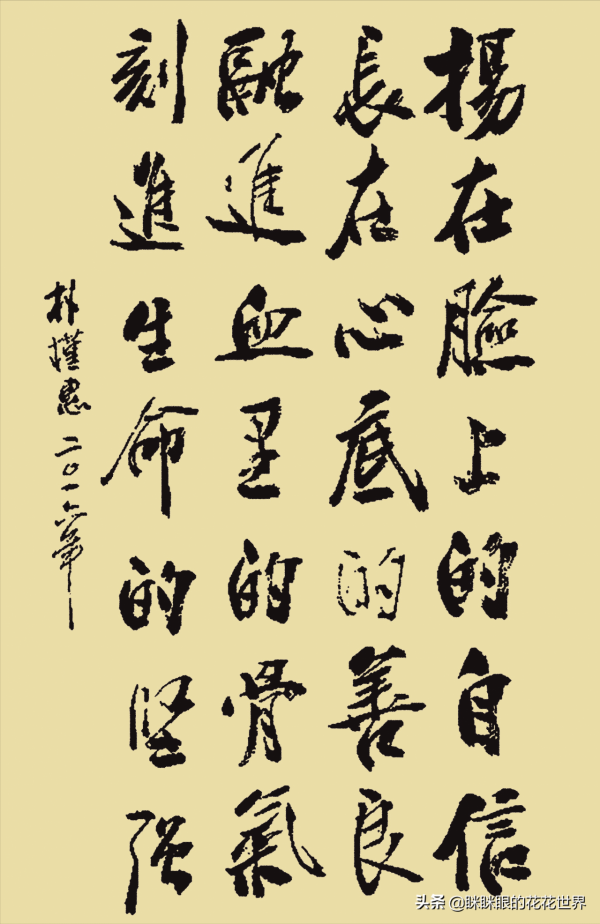 揚在臉上的自信
長在心底的善良
融進血里的骨氣
刻進生命的坚强
朴槿惠二〇一六年
头条 @眯眯眼的花花世界